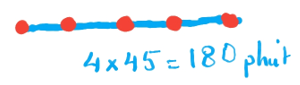 4 x 45 = 180 phút